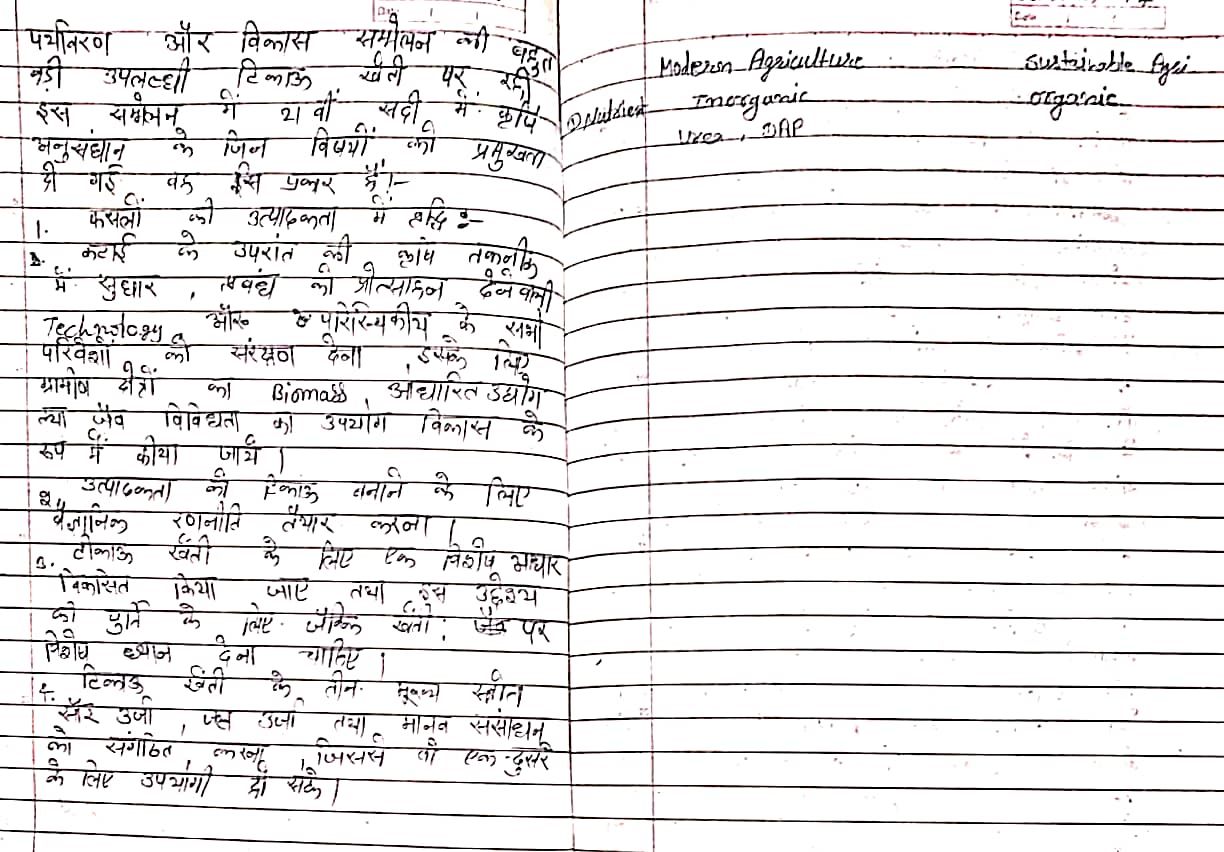 पर्यावरण और विकास सम्मेलन की बहुत
बड़ी उपलब्धी टिकाऊ खेती पर रही
इस सम्मेलन में 21 वीं सदी में कृषि
अनुसंधान के जिन विषयों को प्रमुखता
दी गई वह इस प्रकार हैं।-
1. फसलों की उत्पादकता में वृद्धि :-
2. कटाई के उपरांत की कृषि तकनीक
में सुधार , प्रबंध को प्रोत्साहन देने वाली
Technology और पारिस्थिकीय के सभी
परिवेशों को संरक्षण देना , इसके लिए
ग्रामीण क्षेत्रों का Biomass , आधारित उद्योग
तथा जैव विविधता का उपयोग विकास के
रूप में कीया जाये ।
2. उत्पादकता को टिकाऊ बनाने के लिए
वैज्ञानिक रणनीति तैयार करना ।
3. टीकाऊ खेती के लिए एक विशेष आधार
विकासित किया जाए तथा इस उद्देश्य
की पुर्ति के लिए जैविक खेती , पर
विशेष ध्यान देना चाहिए ।
4. टिकाऊ खेती के तीन मुख्य स्त्रोत
सौर उर्जा , जल उर्जा तथा मानव संसाधन
को संगठित करना , जिससे वो एक-दुसरे
के लिए उपयोगी हो सके ।
Modern Agriculture Sustainable Agri
① Nutrient Inorganic organic
Urea , DAP